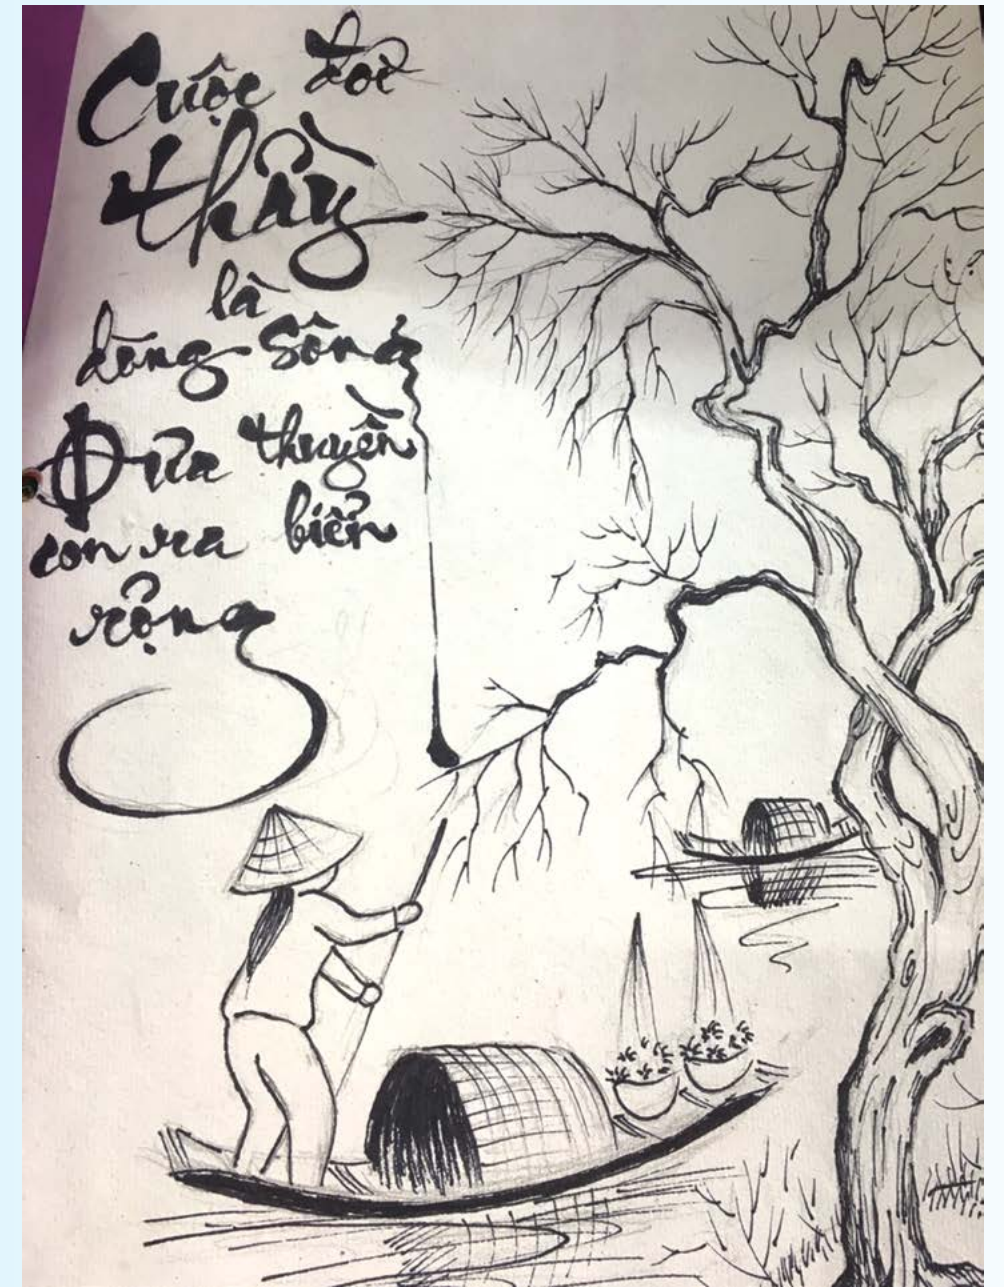 Cuộc đời
thầy
là
dòng sông
Đưa thuyền
con ra biển
rộng